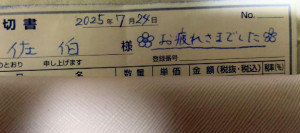 切書 2025年7月24日 No.
佐伯 様 お疲れさまでした
登録番号
のとおり 申し上げます
数量 単価 金額(税抜・税込) 税率(%)